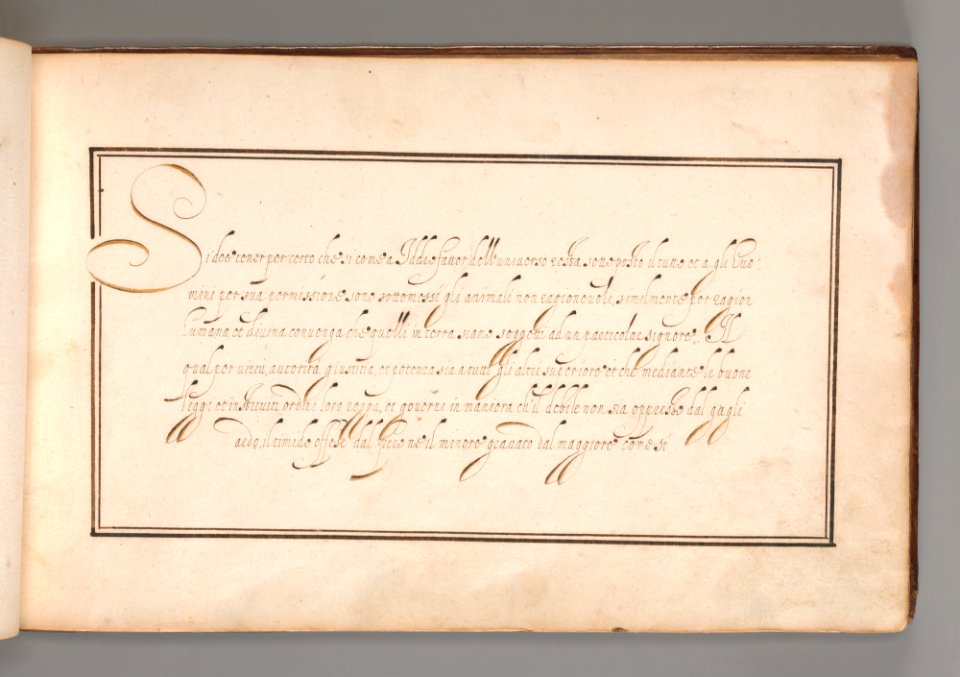 Si dee tener per certo che si come a Iddio fattor dell universo resta sottoposto il tutto et a gli Huo¬
mini per sua permissione sono sottomessi gli animali non ragioneuole, similmente per ragion
humana et diuina conuenga che quelli in terra siano soggetti ad un particolar signore, Il
qual per uirtù, autorità, giustitia, et potenza sia a tutti gli altri superiore et che mediante le buone
legge et instituiti ordini loro regga, et gouerni in maniera ch'il debile non sia oppresso dal gagli
ardo, il timido offeso dal ne il minore grauato dal maggiore come si